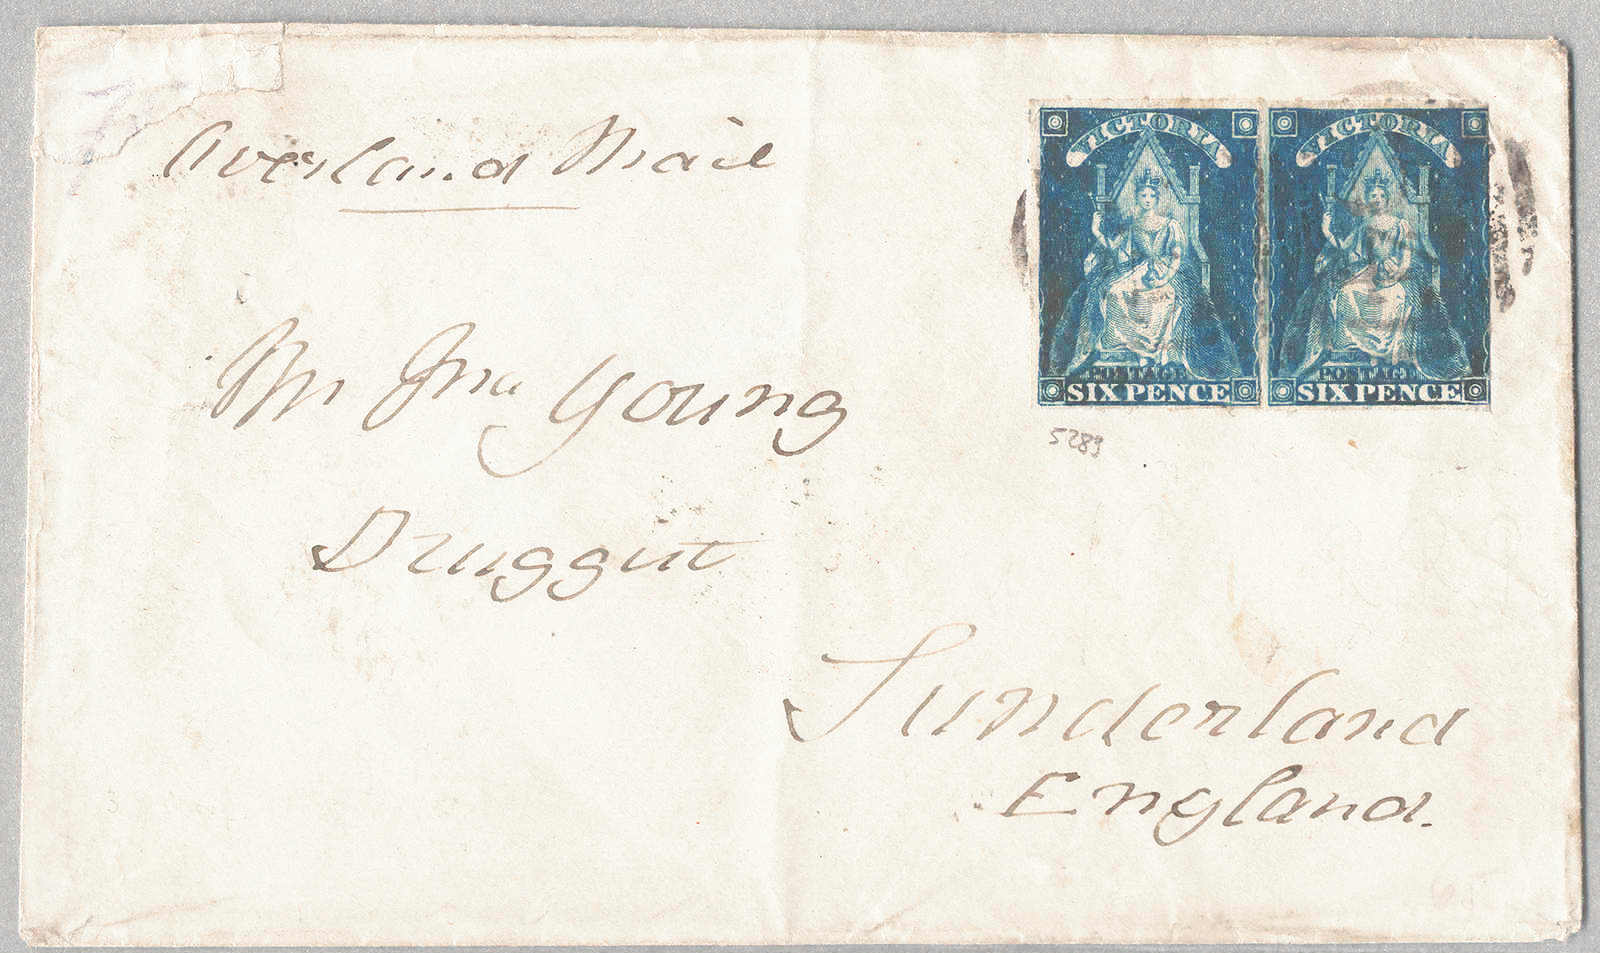 Overland Mail
VICTORIA VICTORIA
POSTAGE POSTAGE
SIX PENCE SIX PENCE
5289
Mr Jno Young
Druggist
Sunderland
England.